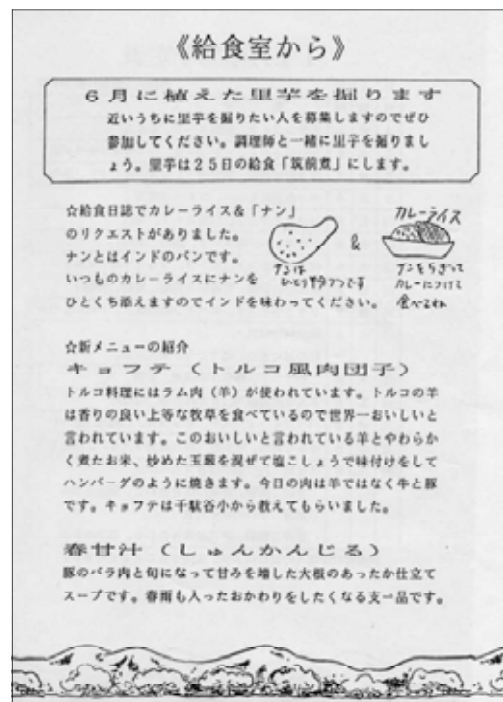 《給食室から》
6月に植えた里芋を掘ります
近いうちに里芋を掘りたい人を募集しますのでぜひ
参加してください。調理師と一緒に里芋を掘りまし
ょう。里芋は25日の給食「筑前煮」にします。
☆給食日誌でカレーライス&「ナン」
のリクエストがありました。
ナンとはインドのパンです。
いつものカレーライスにナンを
ひとくち添えますのでインドを味わってください。
ナンは
ひとり1つです
&
カレーライス
ナンをちぎって
カレーにつけて
食べてね
☆新メニューの紹介
キョフテ(トルコ風肉団子)
トルコ料理にはラム肉(羊)が使われています。トルコの羊
は香りの良い上等な牧草を食べているので世界一おいしいと
言われています。このおいしいと言われている羊とやわらか
く煮たお米、炒めた玉葱を混ぜて塩こしょうで味付けをして
ハンバーグのように焼きます。今日の肉は羊ではなく牛と豚
です。キョフテは千駄谷小から教えてもらいました。
春甘汁(しゅんかんじる)
豚のバラ肉と旬になって甘みを増した大根のあったか仕立て
スープです。春雨も入ったおかわりをしたくなる一品です。